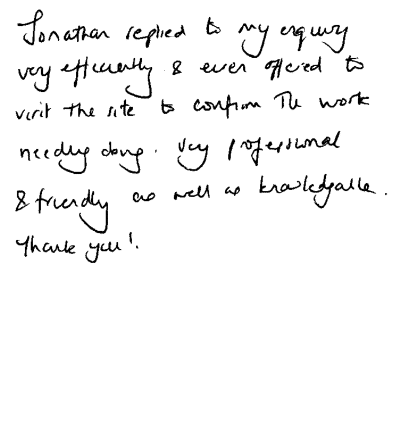 Jonathan replied to my enquiry
very efficiently & even offered to
visit the site to confirm the work
needing doing. Very professional
& friendly as well as knowledgable.
Thank you!